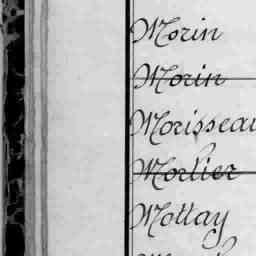 Morin
Morin
Morisseau
Morlier
Mottay